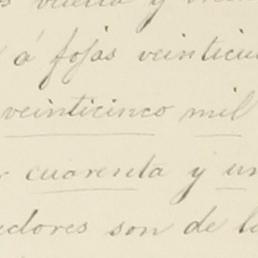 vuelta y
á fojas veinticu
veinticinco mil
cuarenta y un
dores son de la